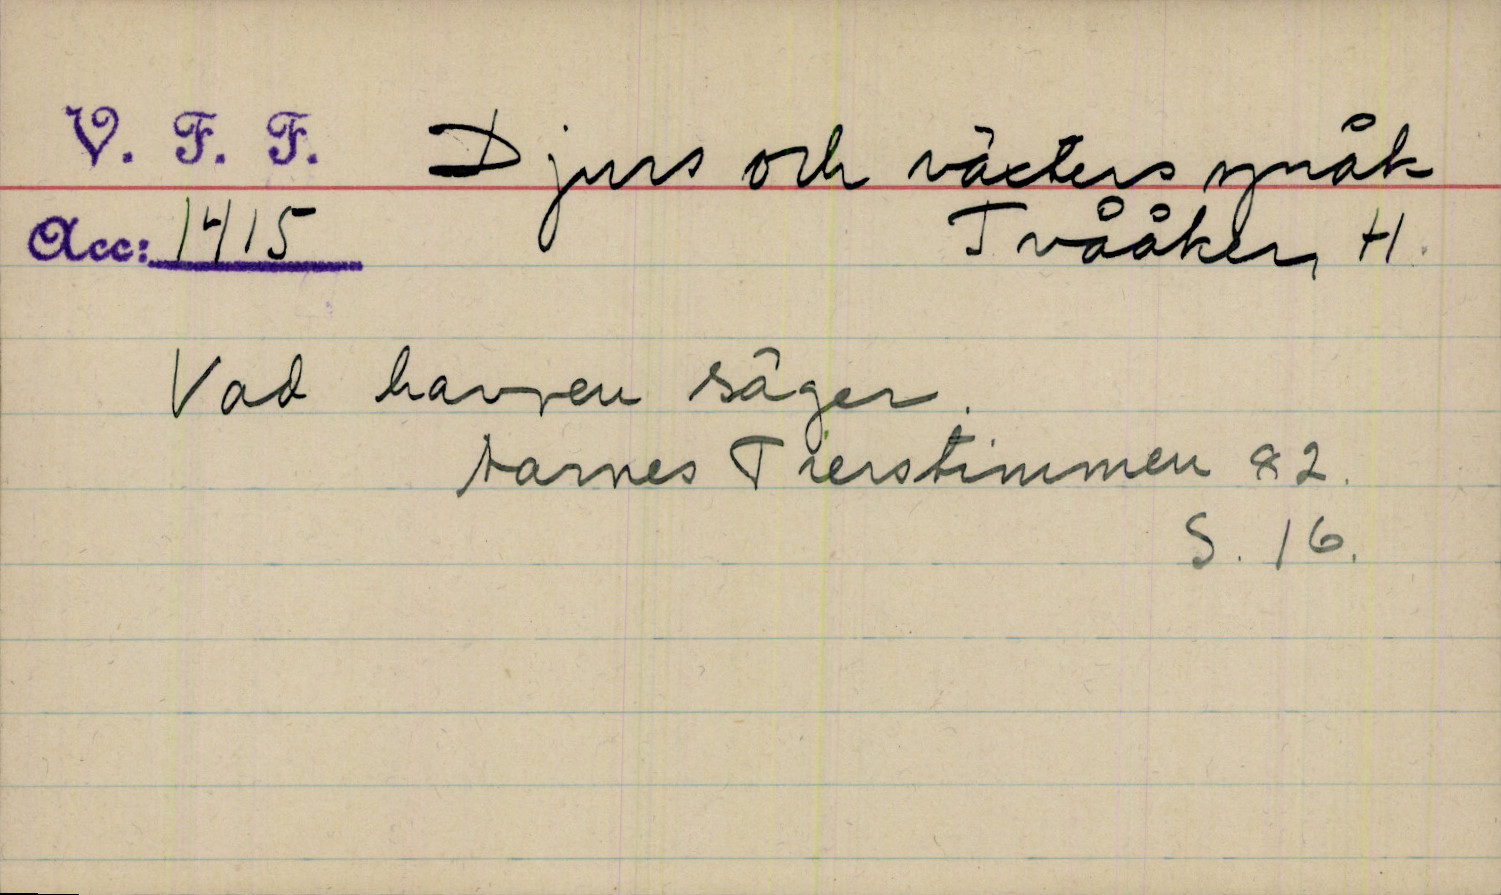 V. F. F. Djurs och växters språk
Acc: 1415 Tvååker, H.
Vad havren säger.
Aarnes Tierstimmen 82.
S. 16.